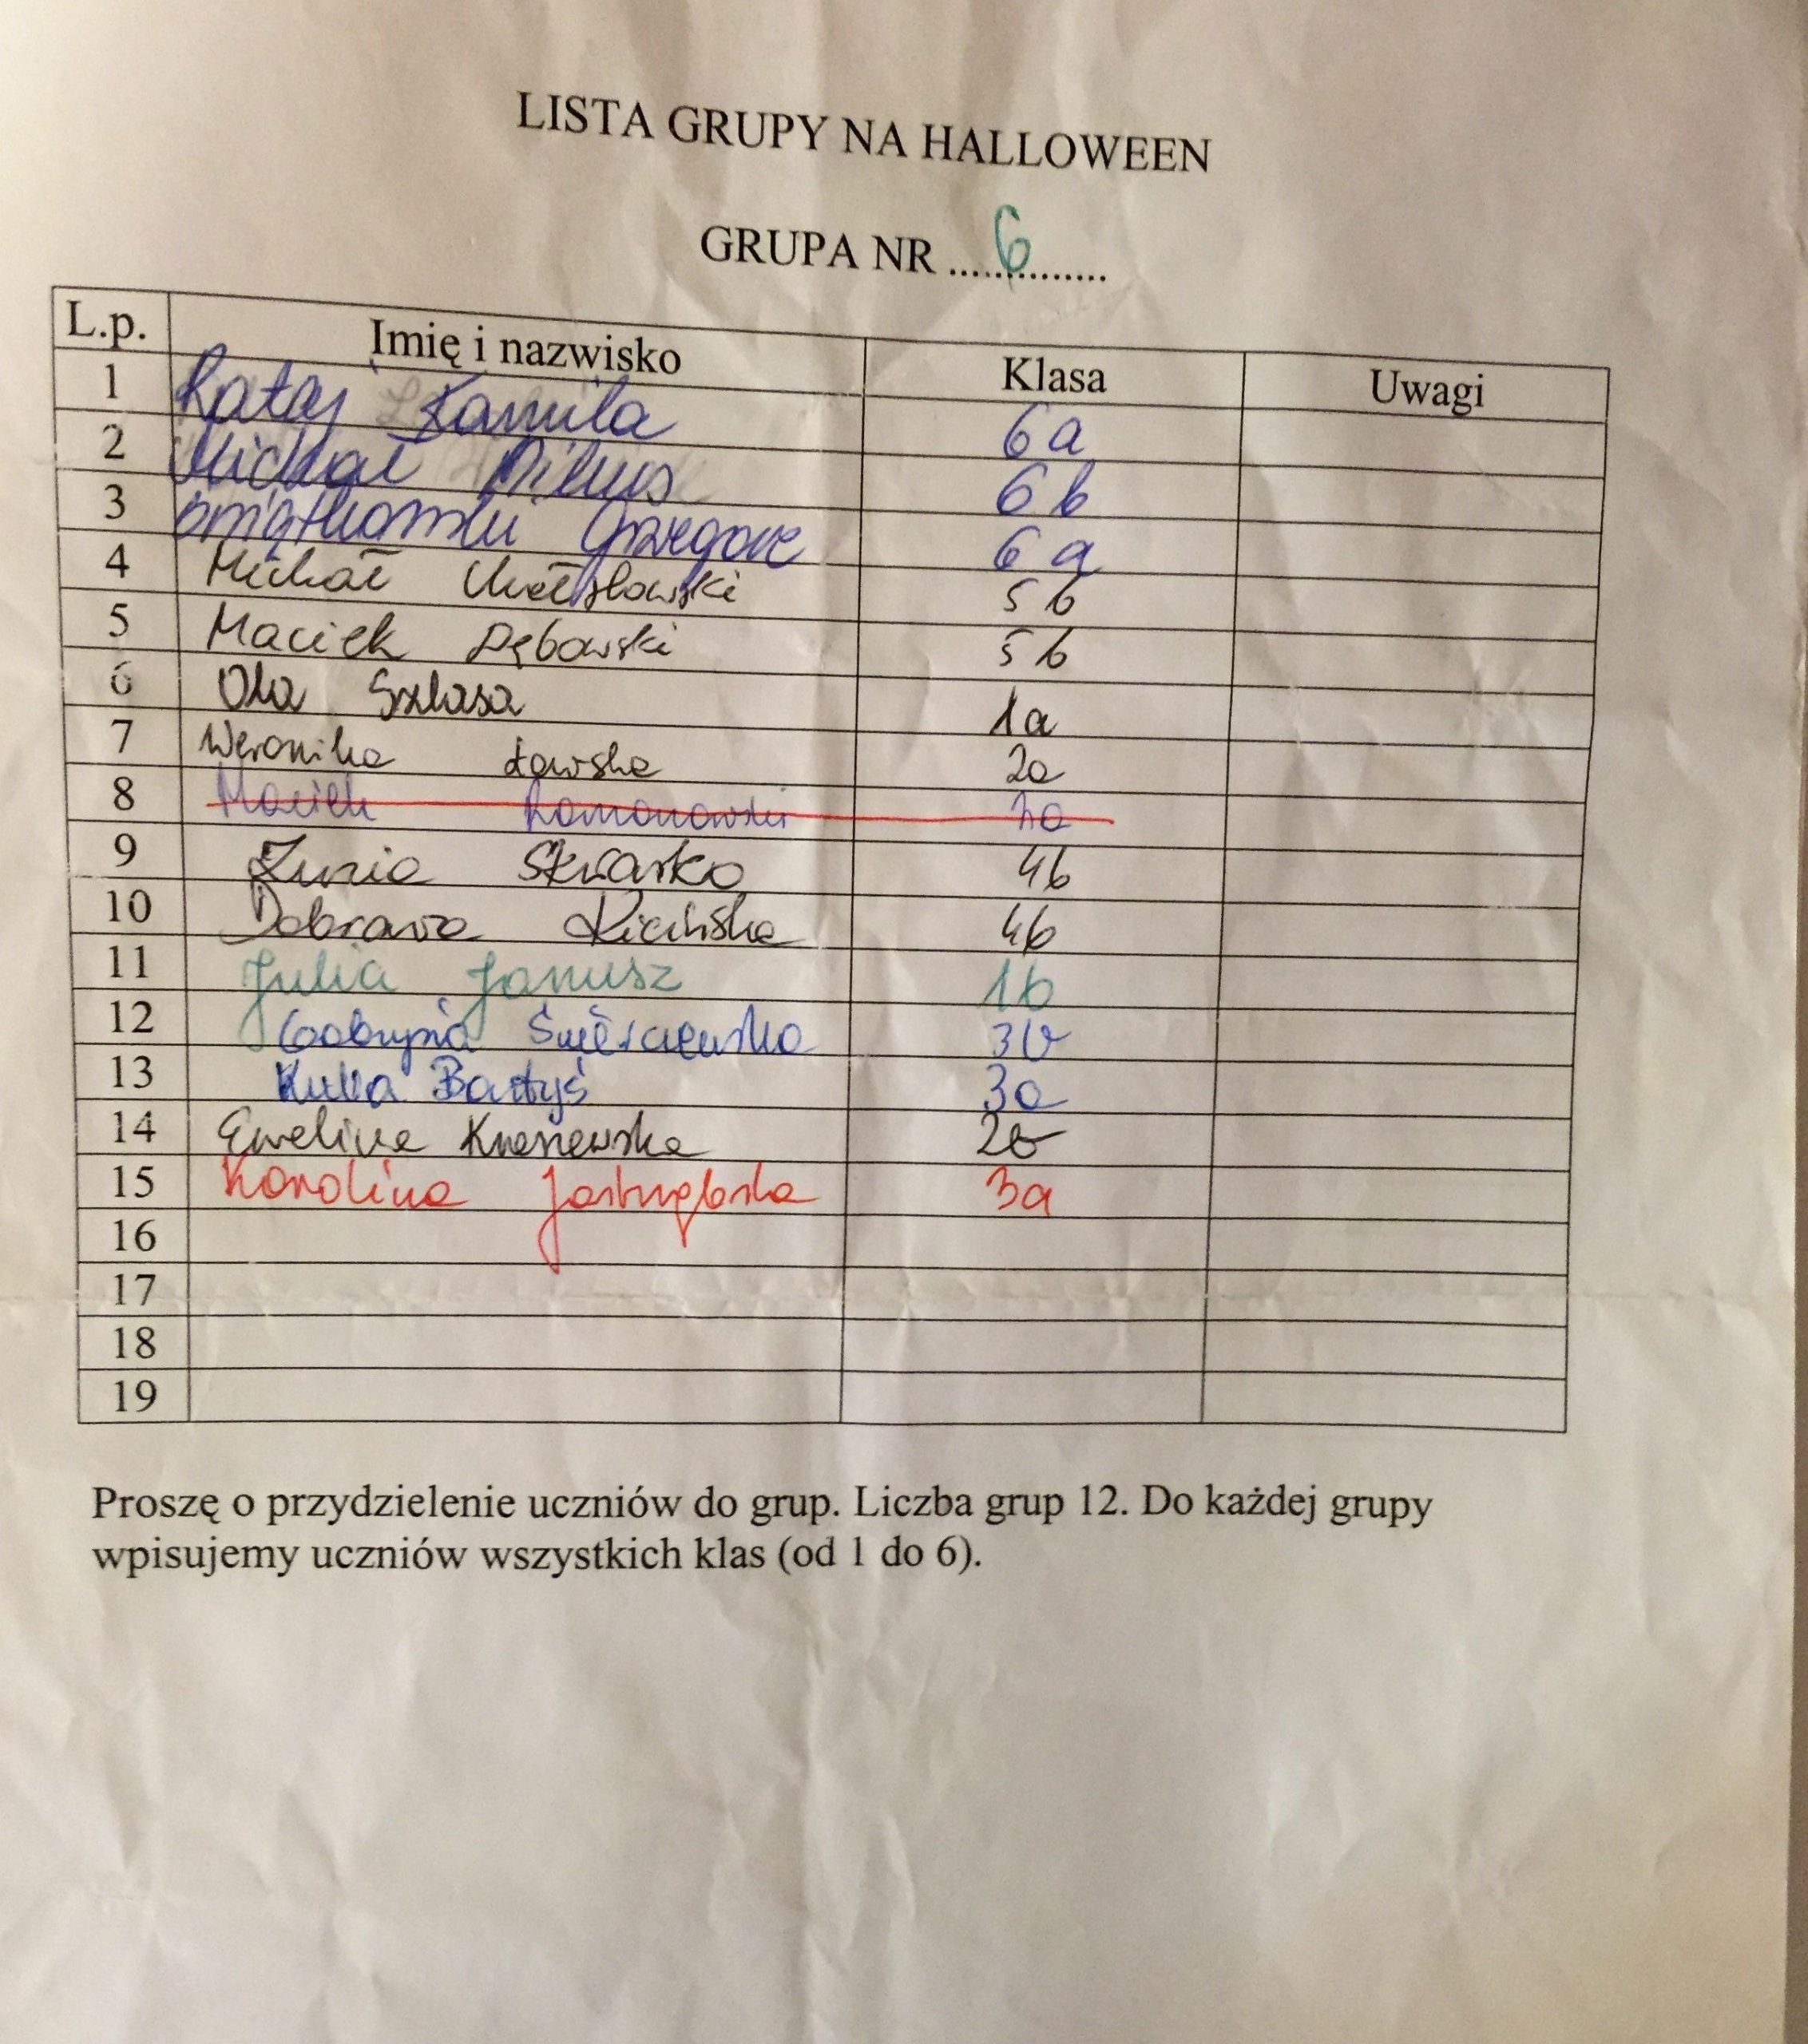 LISTA GRUPY NA HALLOWEEN
GRUPA NR ....6.........
L.p. Imię i nazwisko Klasa Uwagi
1 Rataj Kamila 6a
2 Michał 6b
3 Grzegorz 6a
4 Michał 5b
5 Maciek Dębowski 5b
6 Ola Szlasa 1a
7 Weronika Ławska 2a
8 Maciek Romanowski
9 Zunia Skwarko 4b
10 Dobrawa Kicińska 4b
11 Julia Janusz 1b
12 Gabrysia Świerczewska 3b
13 Kuba Bartyś 3a
14 Ewelina 2b
15 Karolina Jastrzębska 3a
16
17
18
19
Proszę o przydzielenie uczniów do grup. Liczba grup 12. Do każdej grupy
wpisujemy uczniów wszystkich klas (od 1 do 6).